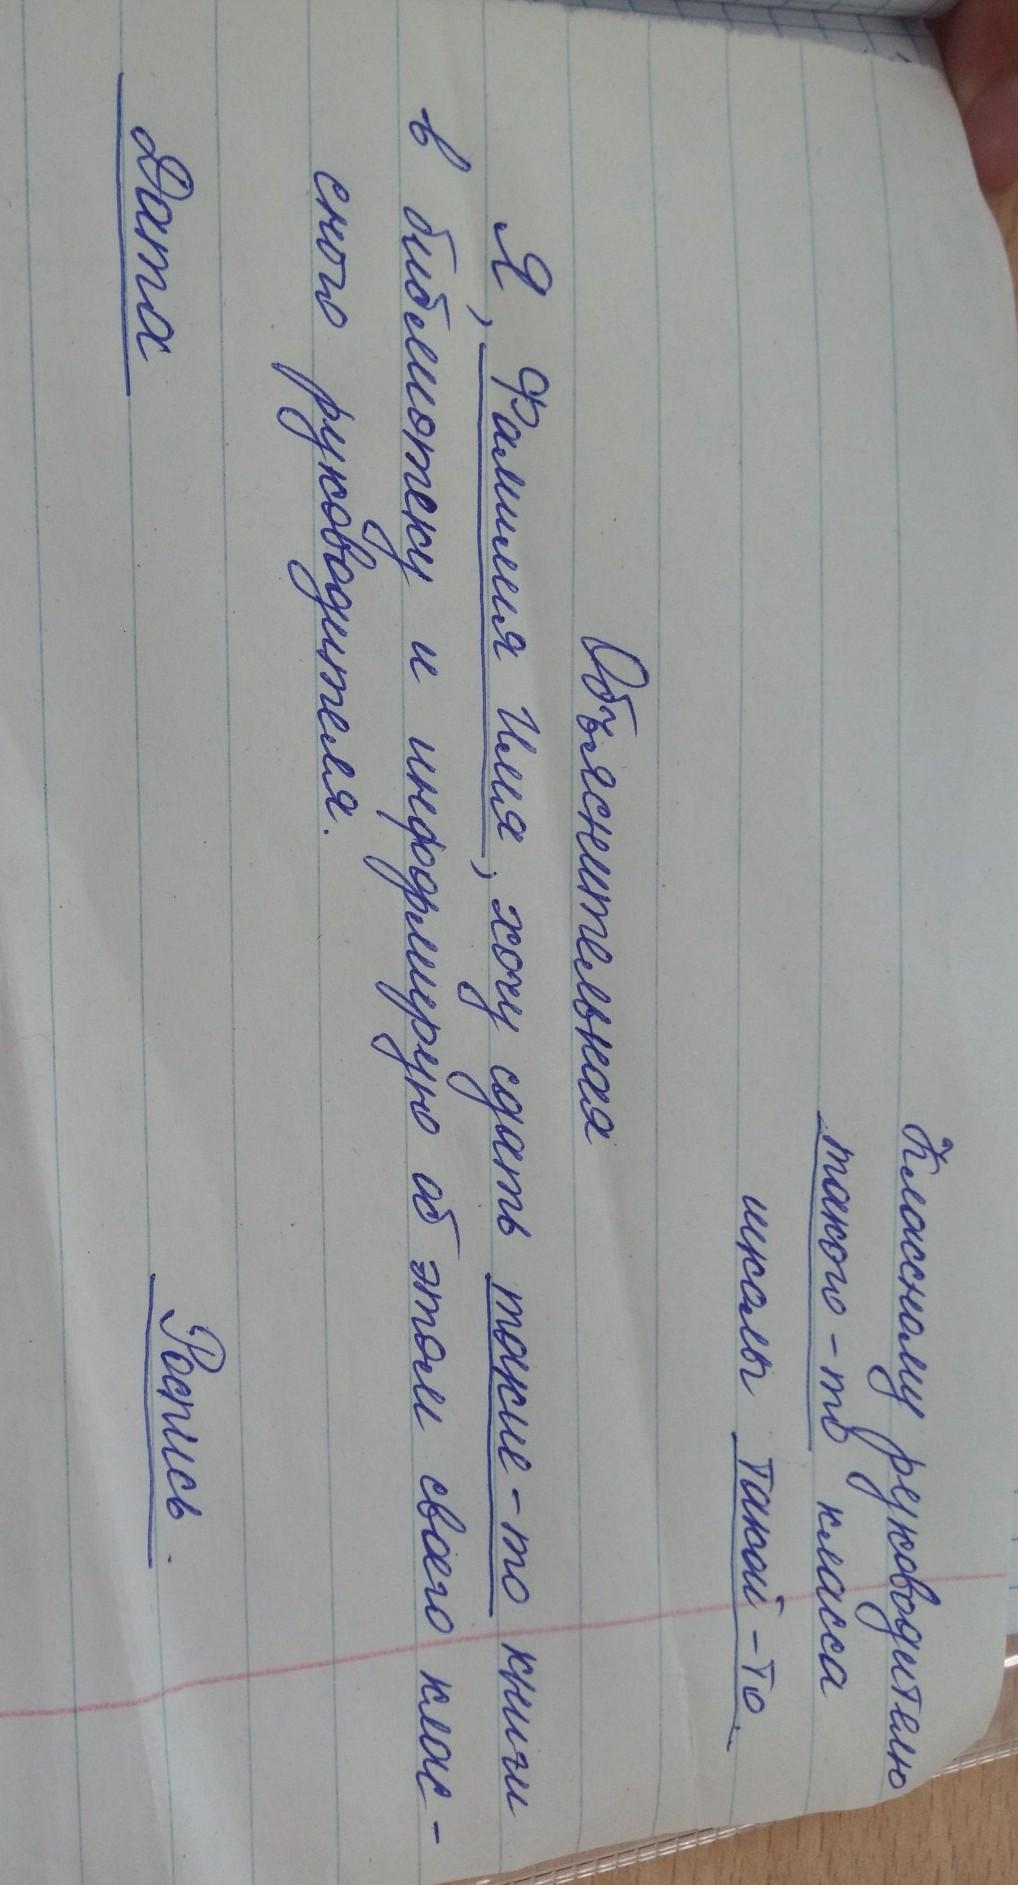 Классному руководителю
такого-то класса
школы такой-то.
Объяснительная
Я, Фамилия Имя, хочу сдать такие-то книги
в библиотеку и информирую об этом своего клас-
сного руководителя.
Дата Роспись.